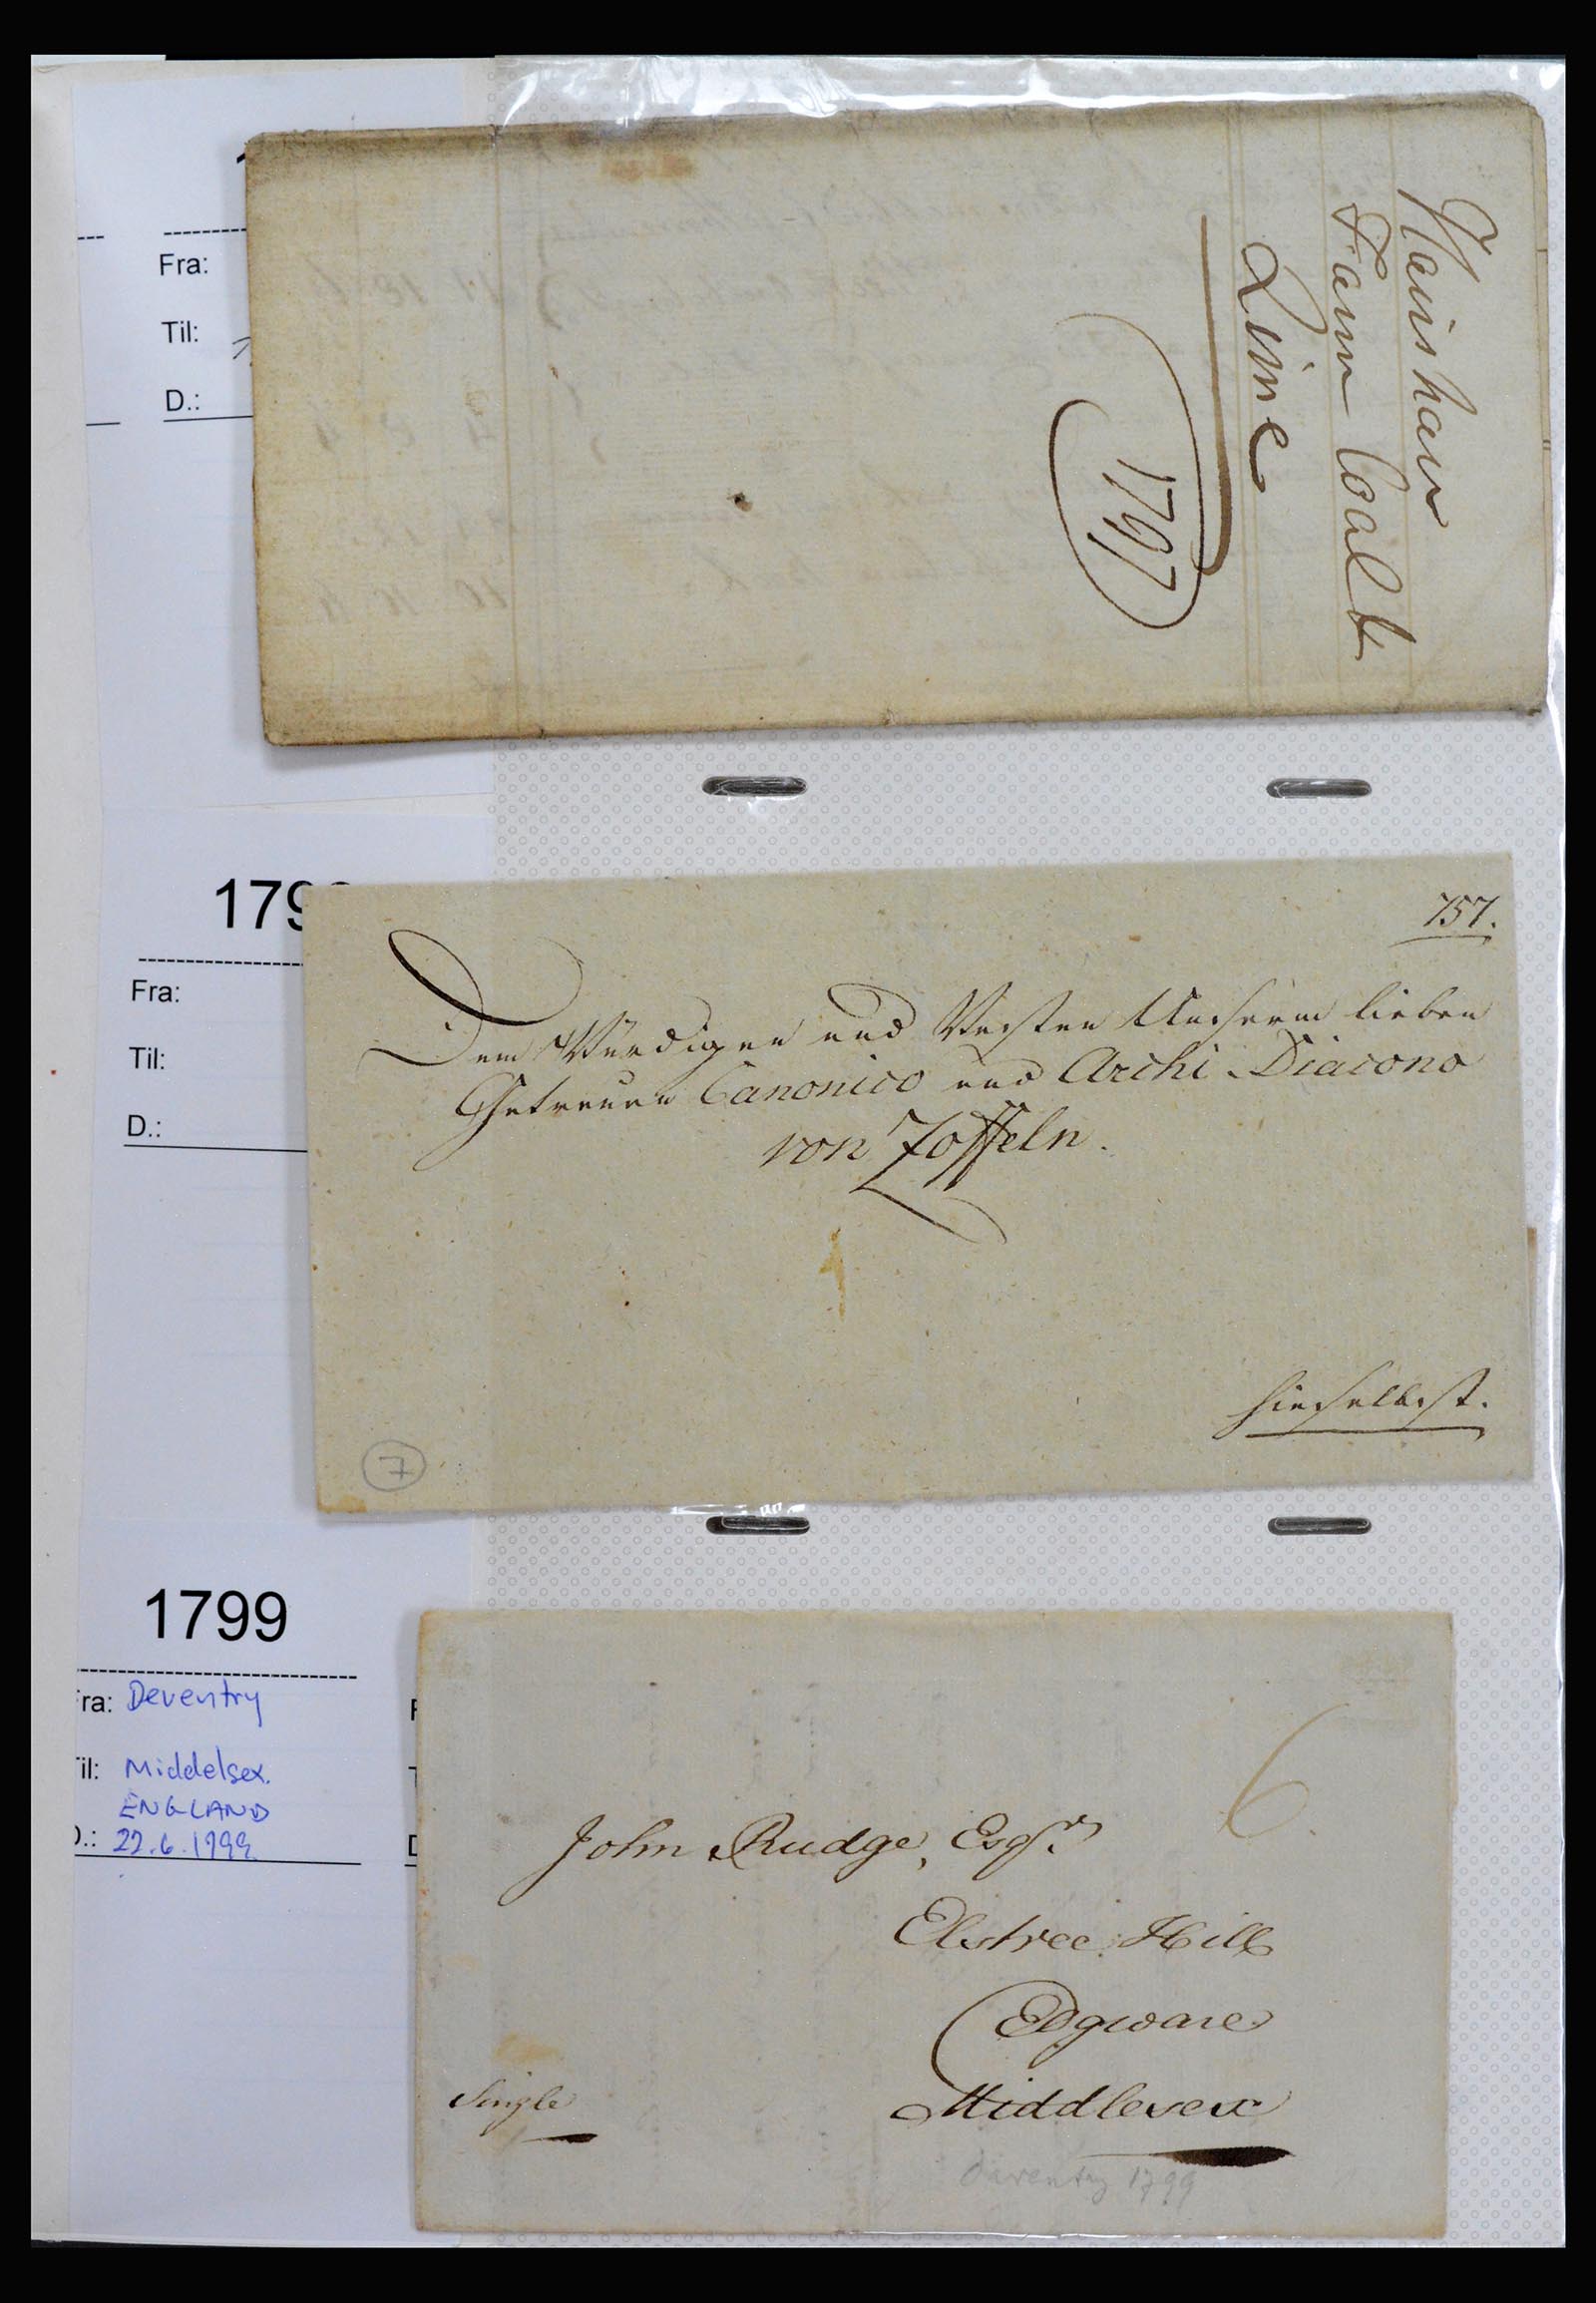 Fra:
Til:
D.:
Farm Coalt
Lime
1797
179
Fra:
Til:
D.:
757.
Dem Würdigen und Vesten Unserm lieben
Getreuen Canonico und Archi-Diacono
von Zoffeln.
hieselbst.
7
1799
ra: Deventry
il: Middelsex.
ENGLAND
.: 22.6.1799
6
John Rudge, Esqr.
Elstree Hill
Edgware
Middlesex
Single
daventry 1799